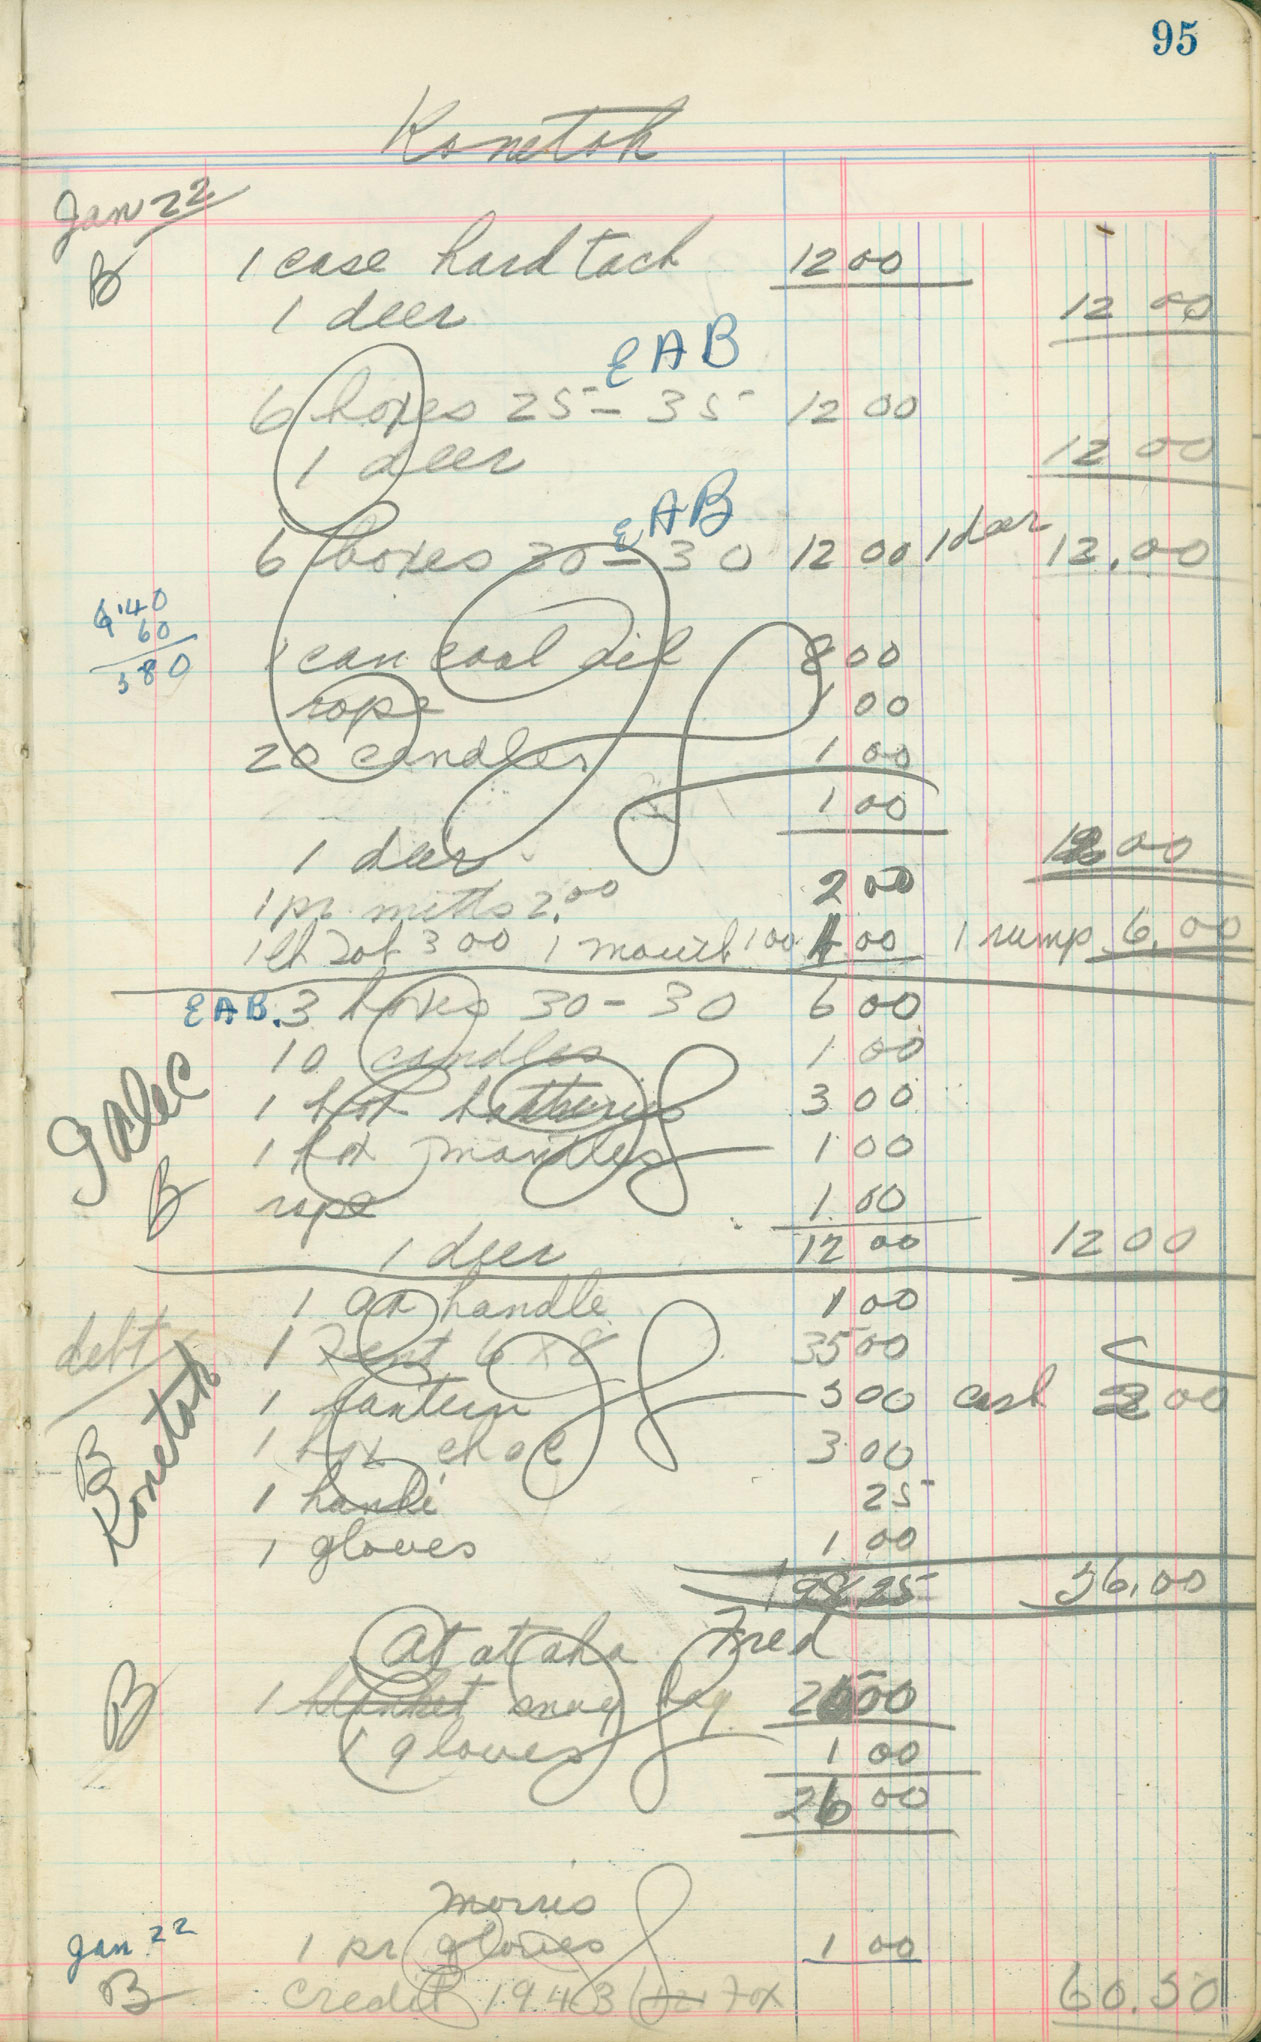 95
Konetok
Jan 22
B 1 case hard tack 12 00
1 deer 12 00
EAB
6 boxes 25-35 12 00
1 deer 12 00
EAB
6 boxes 30-30 12 00 1 deer 12.00
40
60
1 can coal oil 8 00
rope 1 00
20 candles 1 00
1 00
1 deer 12 00
1 pr mitts 2.00 2 00
1 lb 3 00 1 100 4 00 1 rump 6.00
EAB. 3 boxes 30-30 6 00
10 candles 1 00
1 box batteries 3 00
Galec
1 box mantles 1 00
B rope 1.00
1 deer 12 00 12 00
1 ax handle 1 00
debt 1 Tent 6 x 8 35 00
1 lantern 3 00 cash 2 00
B Konetok
1 box choc 3 00
1 hanki 25
1 gloves 1 00
36.00
Atataha Fred
B 1 blanket snug bag 2500
1 gloves 1 00
26 00
Morris
Jan. 22 1 pr gloves 1 00
B credit 1943 for Fox 60.50